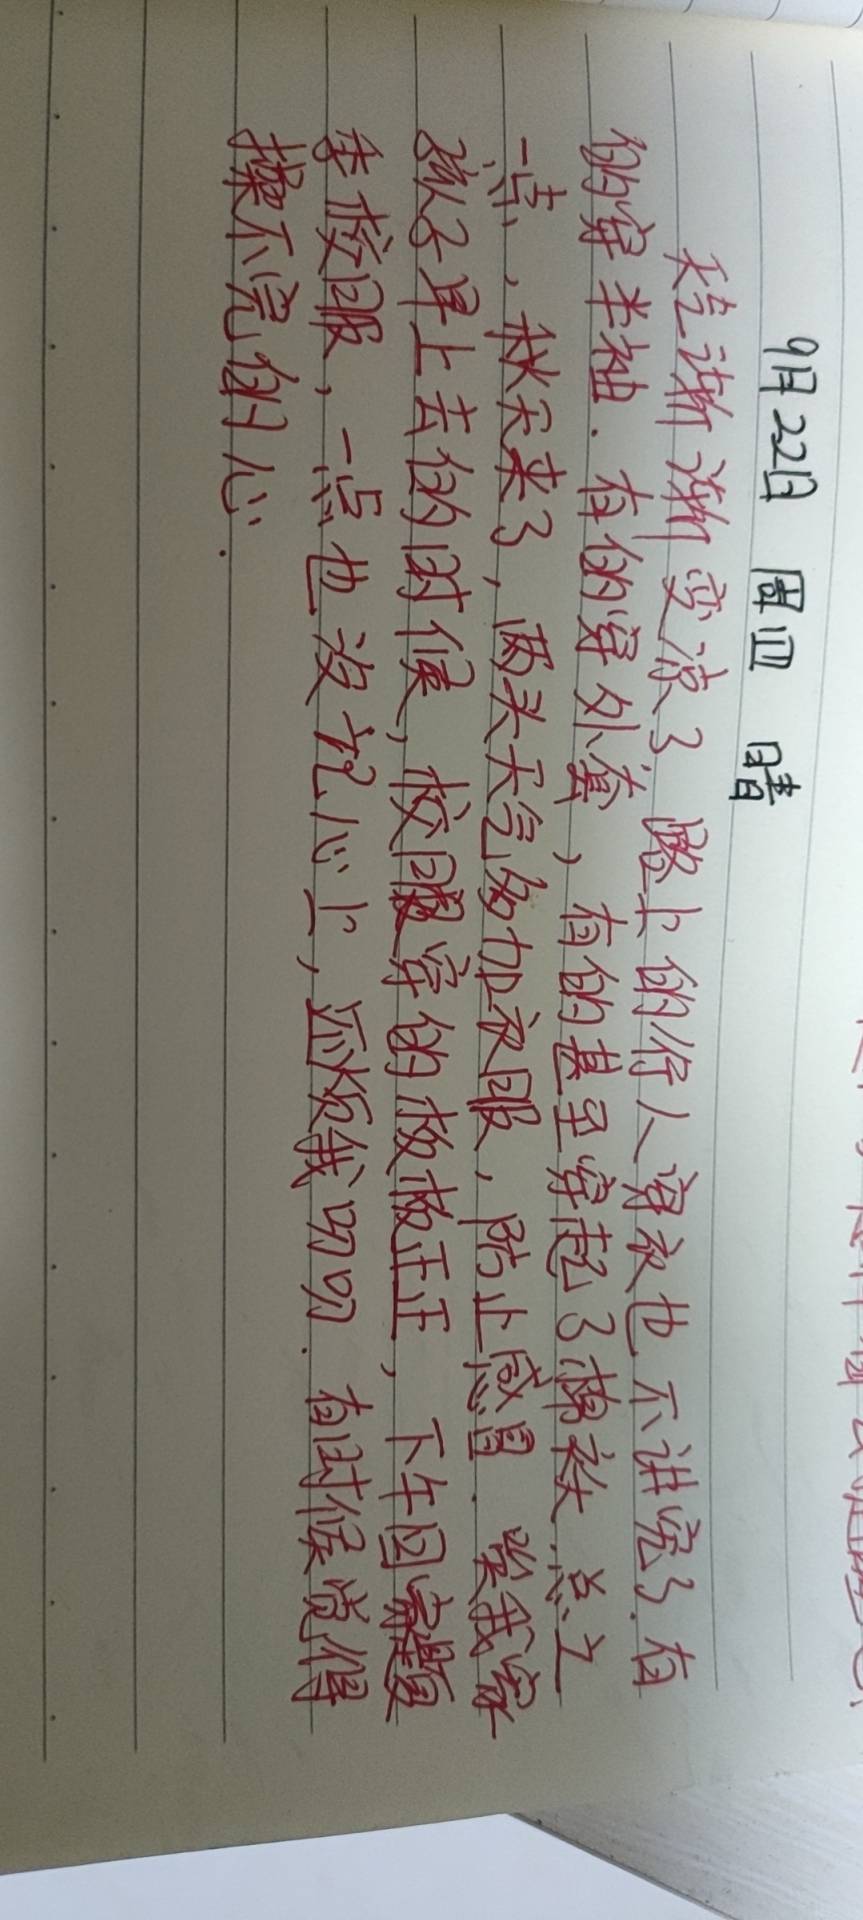 9月22日 周四 晴
天气渐渐变凉了,路上的行人穿衣也不讲究了.有
的穿半袖.有的穿外套,有的甚至穿起了棉袄.总之
一点,秋天来了,两头天气多加衣服,防止感冒.紫我家
孩子早上去的时候,校服穿的板板正正,下午回家
校服,一点也没记心上,还烦我叨叨.有时候觉得
操不完的心.